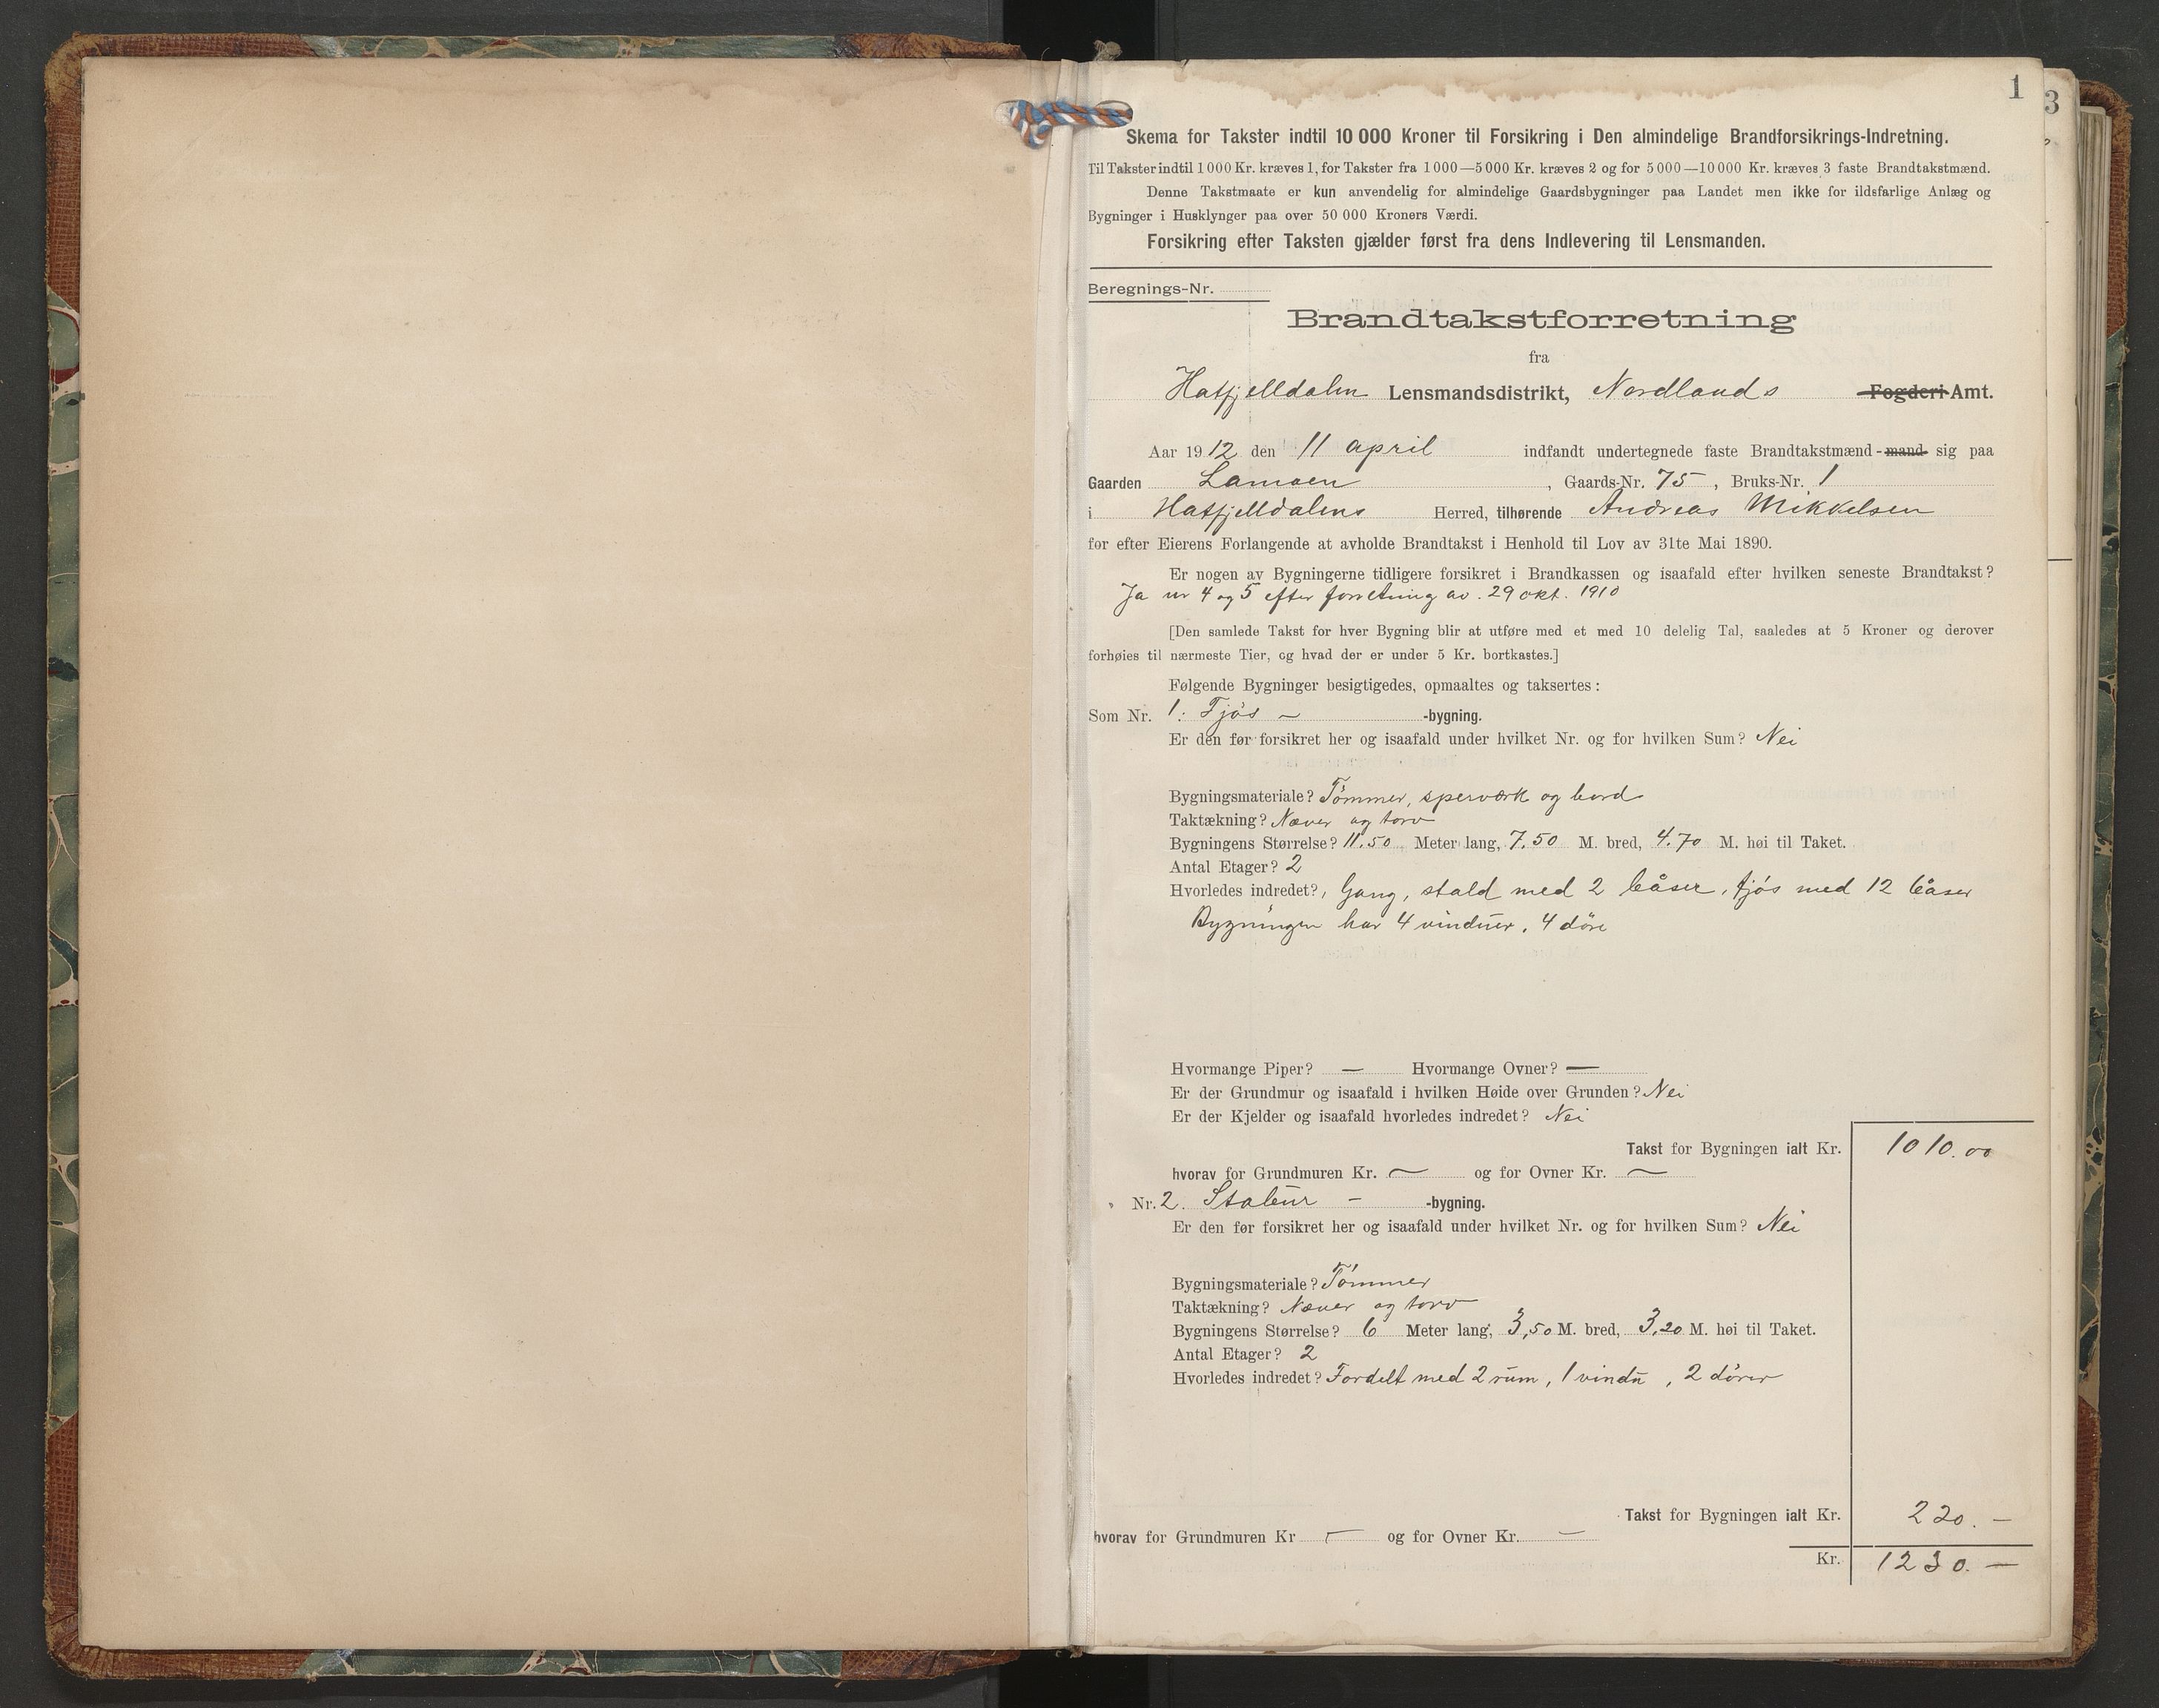 1
3
Skema for Takster indtil 10 000 Kroner til Forsikring i Den almindelige Brandforsikrings-Indretning.
Til Takster indtil 1 000 Kr. kræves 1, for Takster fra 1 000—5 000 Kr. kræves 2 og for 5 000—10 000 Kr. kræves 3 faste Brandtakstmænd.
Denne Takstmaate er kun anvendelig for almindelige Gaardsbygninger paa Landet men ikke for ildsfarlige Anlæg og
Bygninger i Husklynger paa over 50 000 Kroners Værdi.
Forsikring efter Taksten gjælder først fra dens Indlevering til Lensmanden.
Beregnings-Nr.
Brandtakstforretning
fra
Hatfjelldalen Lensmandsdistrikt, Nordlands Fogderi Amt.
Aar 1912 den 11 april indfandt undertegnede faste Brandtakstmænd - mand sig paa
Gaarden Lamoen, Gaards-Nr. 75, Bruks-Nr. 1
i Hatfjelldalens Herred, tilhørende Andreas Mikkelsen
for efter Eierens Forlangende at avholde Brandtakst i Henhold til Lov av 31te Mai 1890.
Er nogen av Bygningerne tidligere forsikret i Brandkassen og isaafald efter hvilken seneste Brandtakst?
Ja nr 4 og 5 efter forretning av. 29 okt. 1910
[Den samlede Takst for hver Bygning blir at utføre med et med 10 delelig Tal, saaledes at 5 Kroner og derover
forhøies til nærmeste Tier, og hvad der er under 5 Kr. bortkastes.]
Følgende Bygninger besigtigedes, opmaaltes og taksertes:
Som Nr. 1. Fjøs – -bygning.
Er den før forsikret her og isaafald under hvilket Nr. og for hvilken Sum? Nei
Bygningsmateriale? Tømmer, sperværk og bord
Taktækning? Næver og torv
Bygningens Størrelse? 11.50 Meter lang, 7.50 M. bred, 4.70 M. høi til Taket.
Antal Etager? 2
Hvorledes indredet?, Gang, stald med 2 båser, fjøs med 12 båser
Bygningen har 4 vinduer, 4 døre
Hvormange Piper? — Hvormange Ovner? —
Er der Grundmur og isaafald i hvilken Høide over Grunden? Nei
Er der Kjelder og isaafald hvorledes indredet? Nei
Takst for Bygningen ialt Kr. 1010.00
hvorav for Grundmuren Kr. — og for Ovner Kr. —
„ Nr. 2. Stabur – -bygning.
Er den før forsikret her og isaafald under hvilket Nr. og for hvilken Sum? Nei
Bygningsmateriale? Tømmer
Taktækning? Næver og torv
Bygningens Størrelse? 6 Meter lang, 3,50 M. bred, 3,20 M. høi til Taket.
Antal Etager? 2
Hvorledes indredet? Fordelt med 2 rum, 1 vindu, 2 dører
Takst for Bygningen ialt Kr. 220. –
hvorav for Grundmuren Kr – og for Ovner Kr. –
Kr. 1230. –